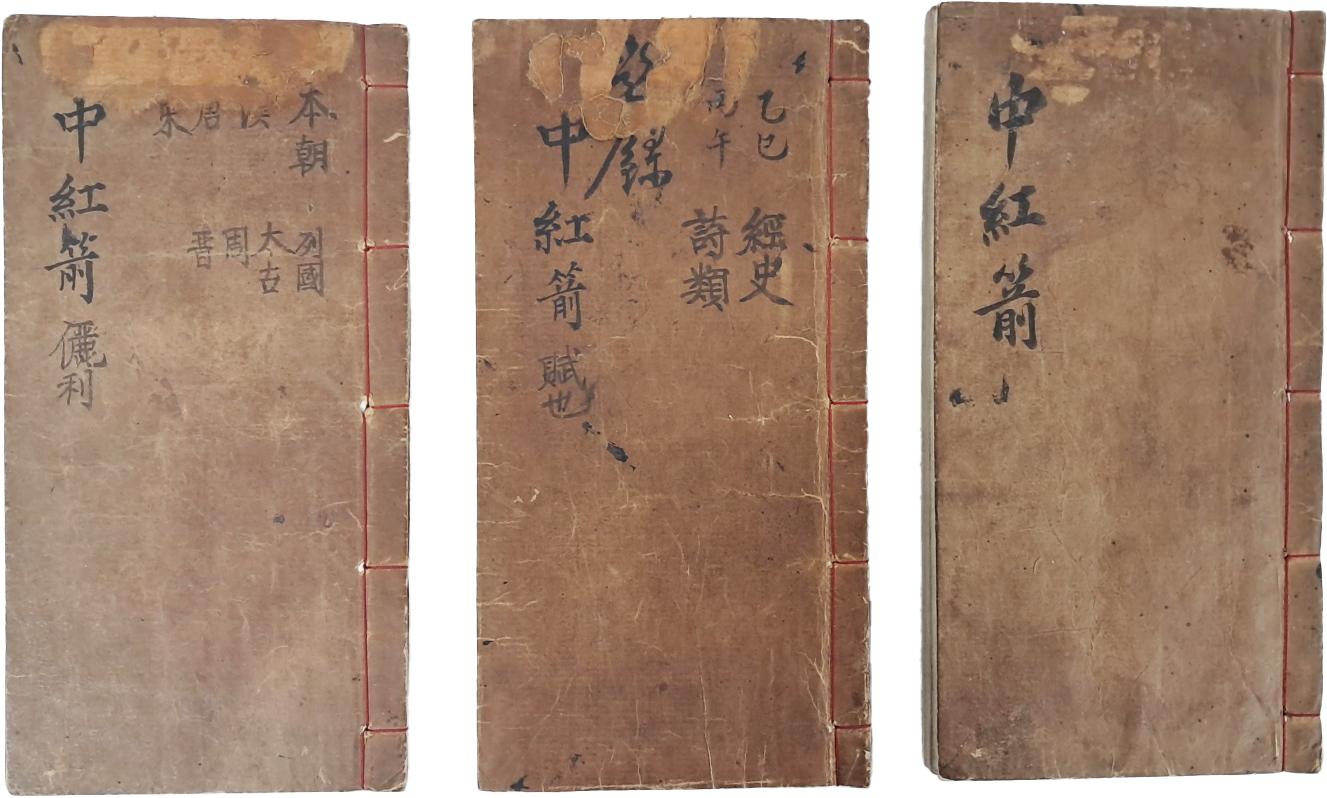 本朝
周
列國
太古
周
晋
中紅箭 儷利
乙巳 經史
丙午 詩類
錄
中紅箭 賦也
中紅箭